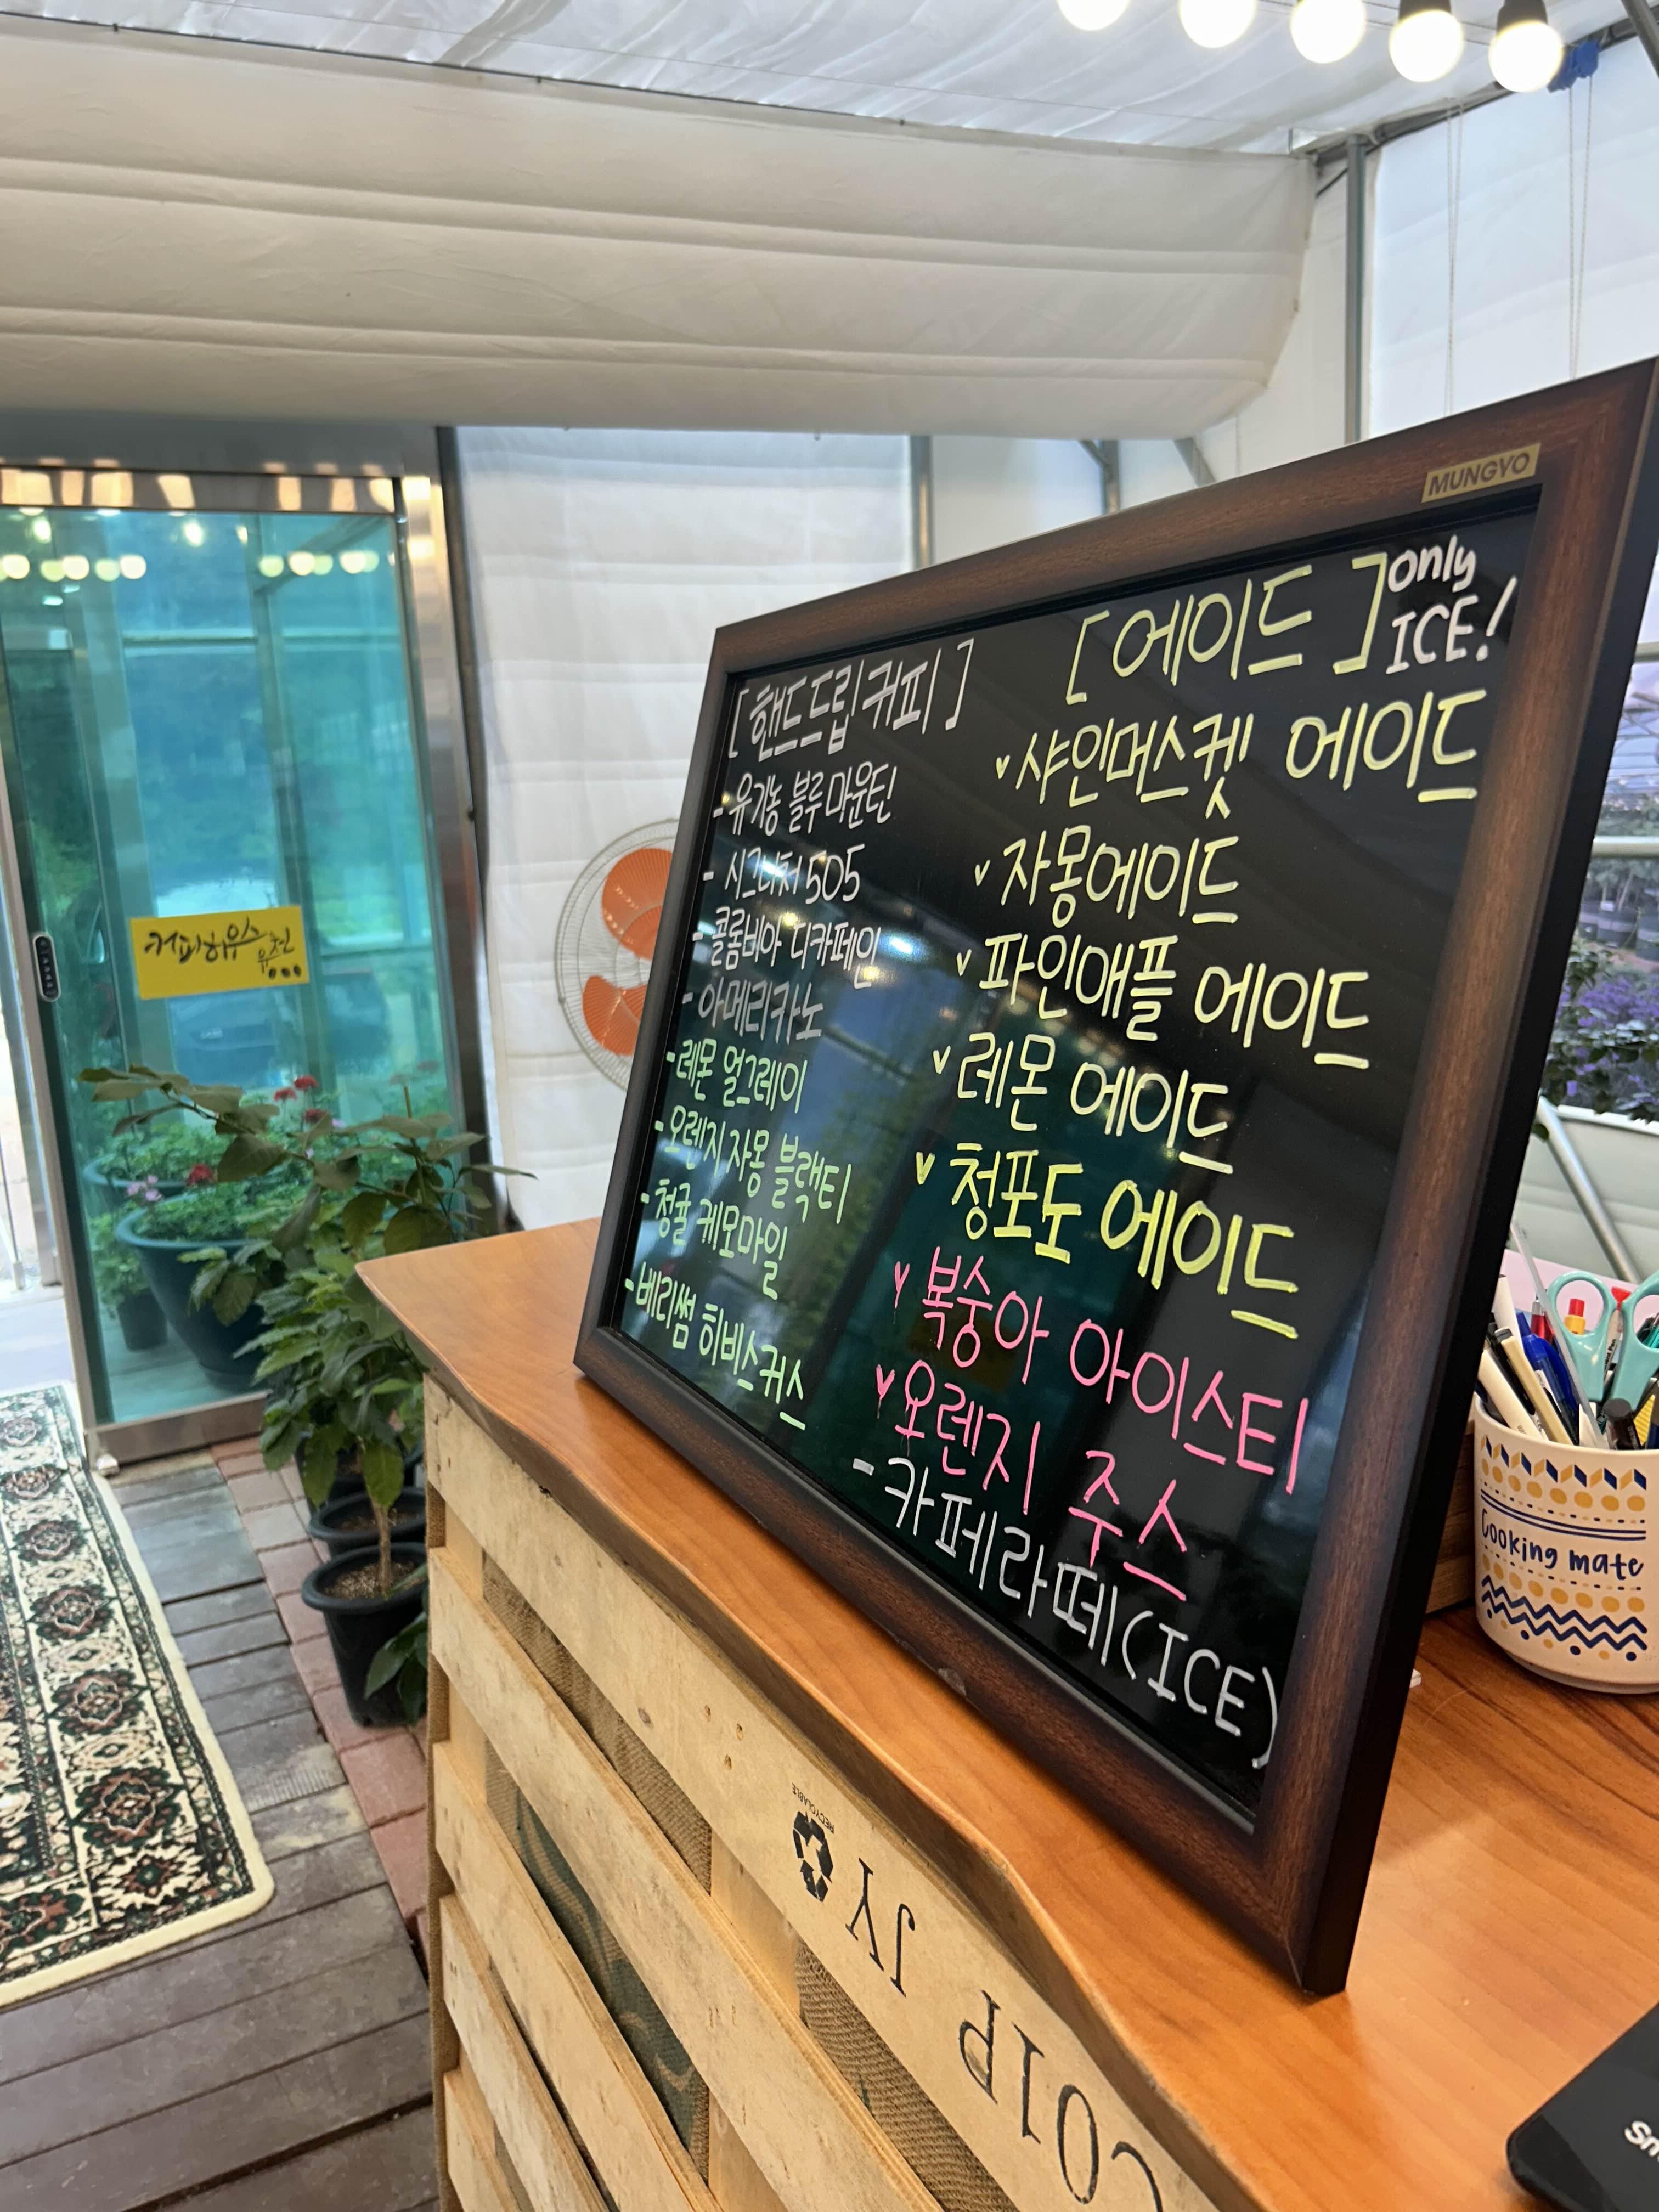 MUNGYO
[핸드드립커피]
- 유기농 블루마운틴
- 시그니처 505
- 콜롬비아 디카페인
- 아메리카노
- 레몬 얼그레이
- 오렌지 자몽 블랙티
- 청귤 케모마일
- 베리썸 히비스커스
[에이드] only
ICE!
샤인머스켓 에이드
자몽에이드
파인애플 에이드
레몬 에이드
청포도 에이드
복숭아 아이스티
오렌지 주스
- 카페라떼(ICE)
커피하우스
Cooking mate
RECYCLABLE
JY